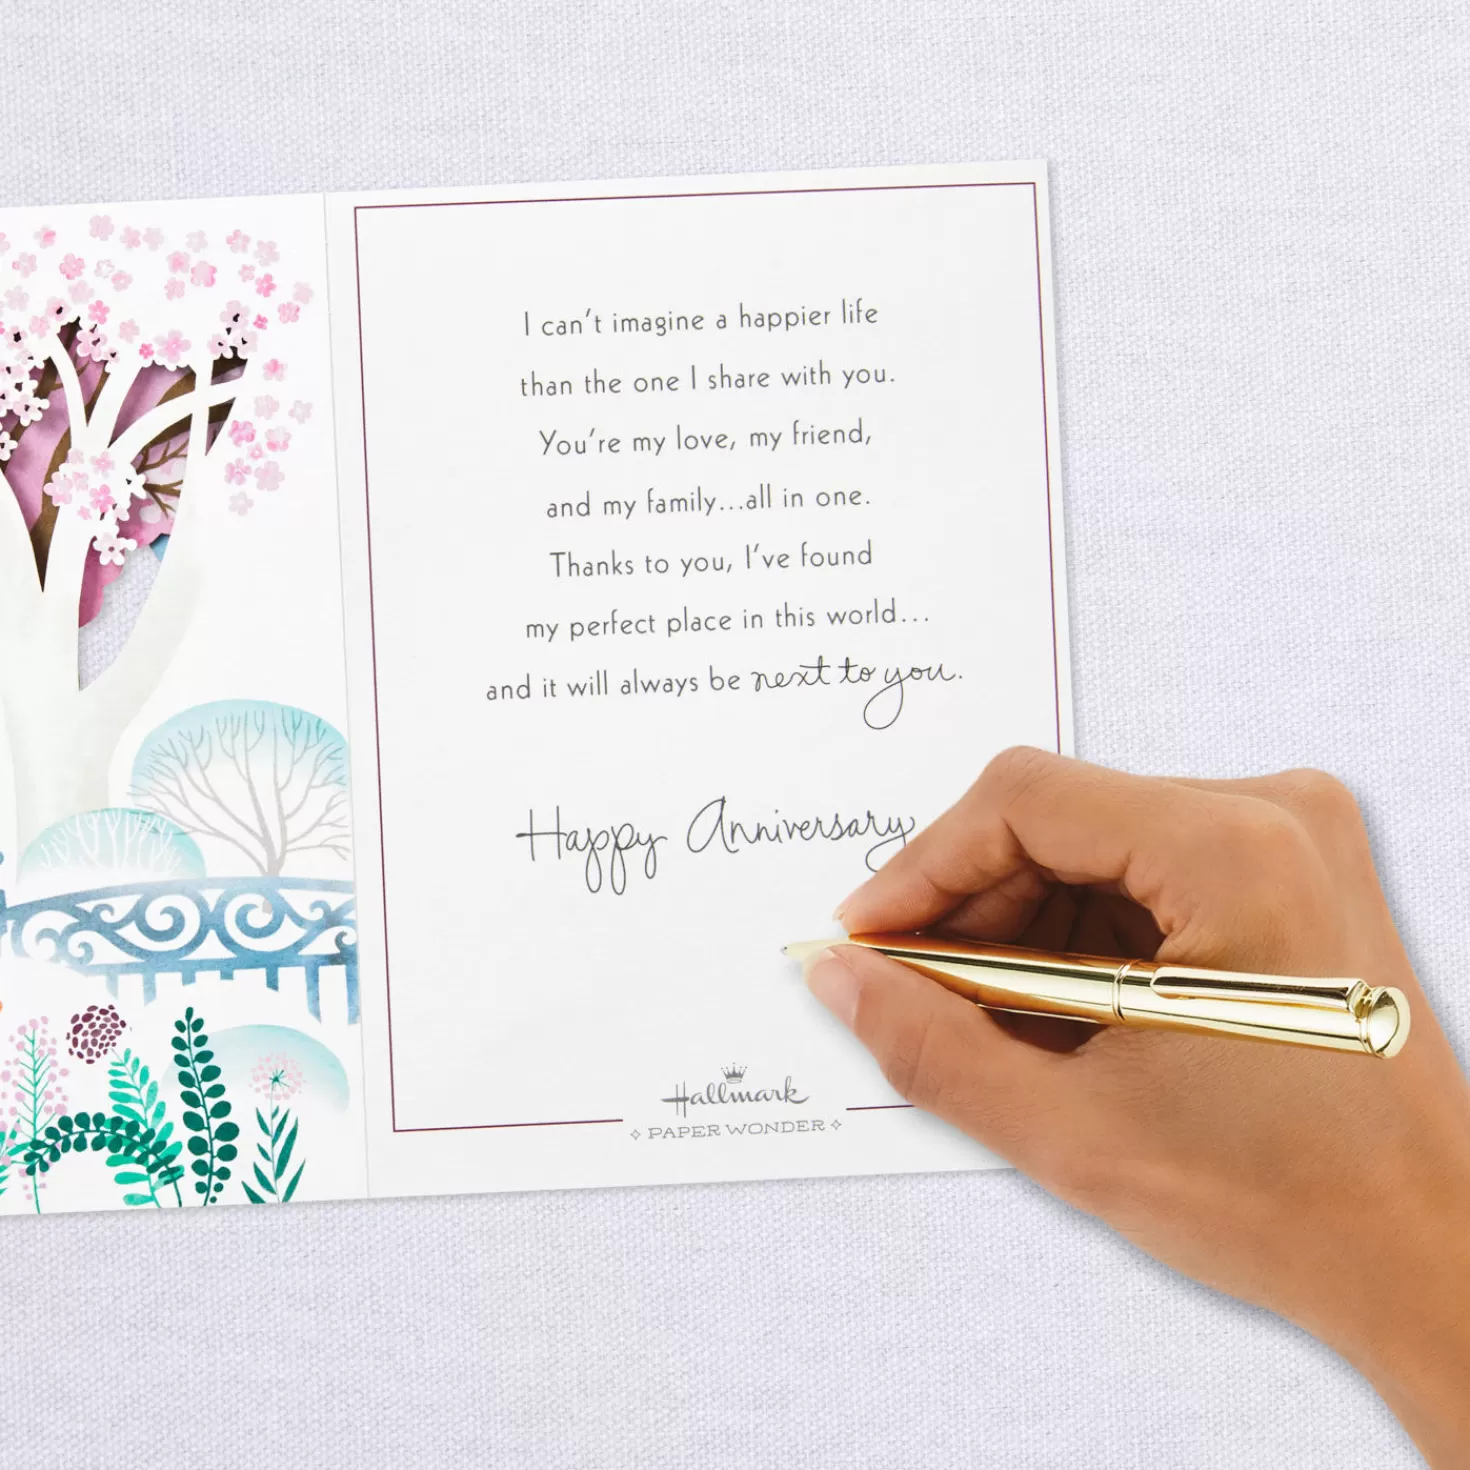 I can't imagine a happier life
than the one I share with you.
You're my love, my friend,
and my family...all in one.
Thanks to you, I've found
my perfect place in this world...
and it will always be next to you.
Happy Anniversary
Hallmark
PAPER WONDER